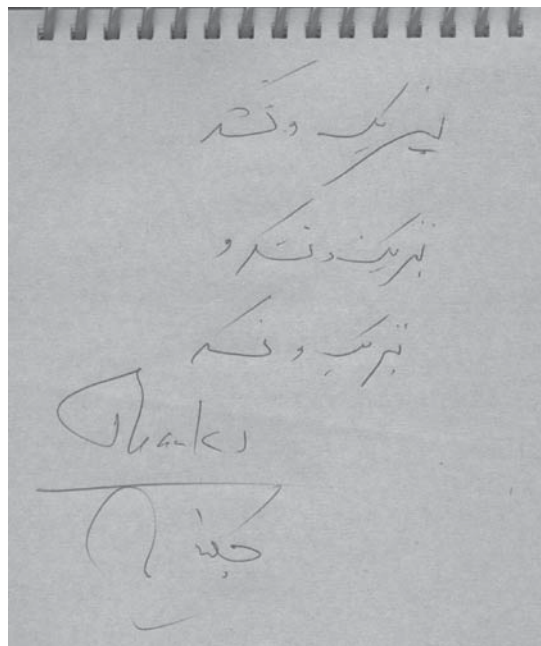 تبریک و تشکر
تبریک و تشکر و
تبریک و تشکر
Thanks